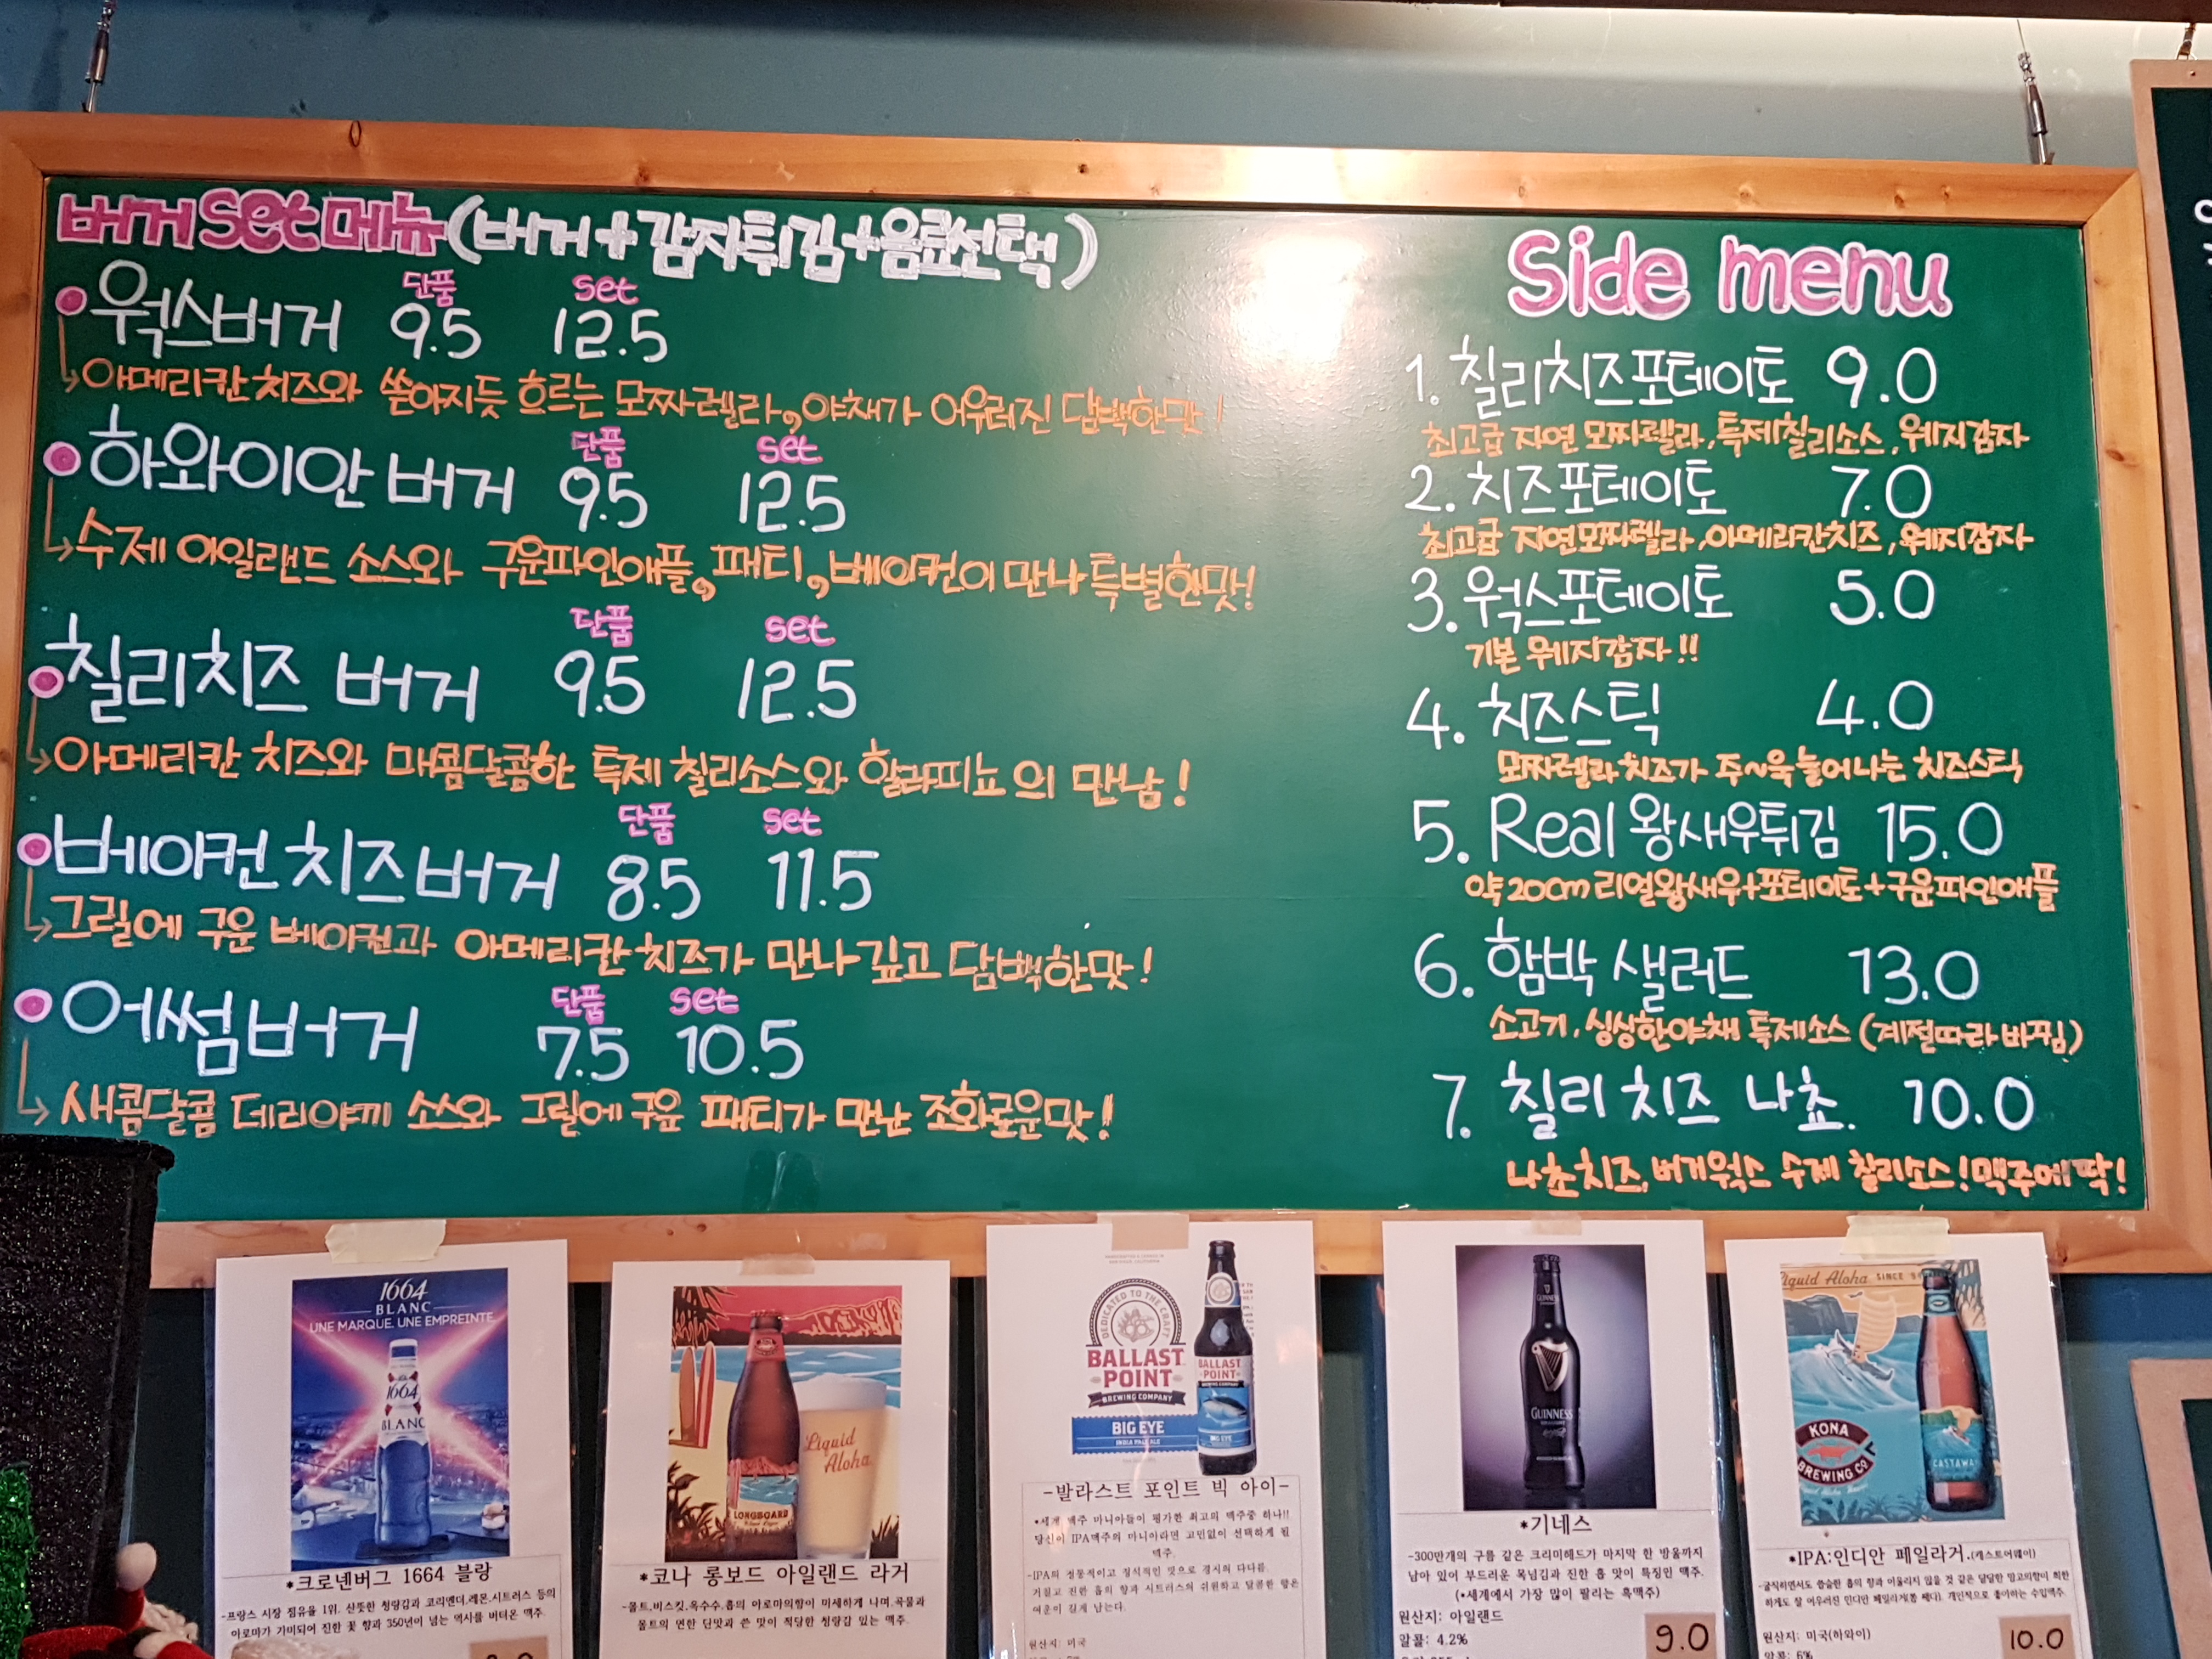 버거 set 메뉴(버거+감자튀김+음료선택)
단품 set
웍스버거 9.5 12.5
아메리칸 치즈와 쏟아지듯 흐르는 모짜렐라, 야채가 어우러진 담백한맛!
단품 set
하와이안 버거 9.5 12.5
수제 아일랜드 소스와 구운파인애플, 패티, 베이컨이 만나 특별한맛!
단품 set
칠리치즈 버거 9.5 12.5
아메리칸 치즈와 매콤달콤한 특제 칠리소스와 할라피뇨의 만남!
단품 set
베이컨 치즈버거 8.5 11.5
그릴에 구운 베이컨과 아메리칸 치즈가 만나 깊고 담백한맛!
단품 set
어썸버거 7.5 10.5
새콤달콤 데리야끼 소스와 그릴에 구운 패티가 만난 조화로운맛!
Side menu
1. 칠리치즈포테이토 9.0
최고급 자연 모짜렐라, 특제칠리소스, 웨지감자
2. 치즈포테이토 7.0
최고급 자연모짜렐라, 아메리칸치즈, 웨지감자
3. 웍스포테이토 5.0
기본 웨지감자!!
4. 치즈스틱 4.0
모짜렐라 치즈가 주~욱 늘어나는 치즈스틱
5. Real 왕새우튀김 15.0
약 20cm 리얼왕새우+포테이토+구운파인애플
6. 함박 샐러드 13.0
소고기, 싱싱한야채 특제소스 (계절따라 바뀜)
7. 칠리 치즈 나쵸. 10.0
나쵸치즈, 버거웍스 수제 칠리소스! 맥주에 딱!
1664
BLANC
UNE MARQUE. UNE EMPREINTE
1664
BLANC
*크로넨버그 1664 블랑
-프랑스 시장 점유율 1위. 산뜻한 청량감과 코리엔더,레몬,시트러스 등의
아로마가 가미되어 진한 꽃 향과 350년이 넘는 역사를 버텨온 맥주.
Liquid
Aloha
LONGBOARD
*코나 롱보드 아일랜드 라거
-몰트,비스킷,옥수수,홉의 아로마의향이 미세하게 나며,곡물과
몰트의 연한 단맛과 쓴 맛이 적당한 청량감 있는 맥주.
DEDICATED TO THE CRAFT
BALLAST
POINT
BREWING COMPANY
BIG EYE
INDIA PALE ALE
BALLAST
POINT
BIG EYE
-발라스트 포인트 빅 아이-
*세계 맥주 마니아들이 평가한 최고의 맥주중 하나!!
당신이 IPA맥주의 마니아라면 고민없이 선택하게 될
맥주.
-IPA의 정통적이고 질식적인 맛으로 경시의 다다름.
거칠고 진한 홉의 향과 시트러스의 쉬원하고 달콤한 향은
여운이 길게 남는다.
원산지: 미국
GUINNESS
*기네스
-300만개의 구름 같은 크리미헤드가 마지막 한 방울까지
남아 있어 부드러운 목넘김과 진한 홉 맛이 특징인 맥주.
(*세계에서 가장 많이 팔리는 흑맥주)
원산지: 아일랜드
알콜: 4.2%
9.0
Liquid Aloha SINCE
KONA
BREWING CO.
CASTAWAY
*IPA:인디안 페일라거.(캐스트어웨이)
원산지: 미국(하와이)
알콜: 6%
10.0